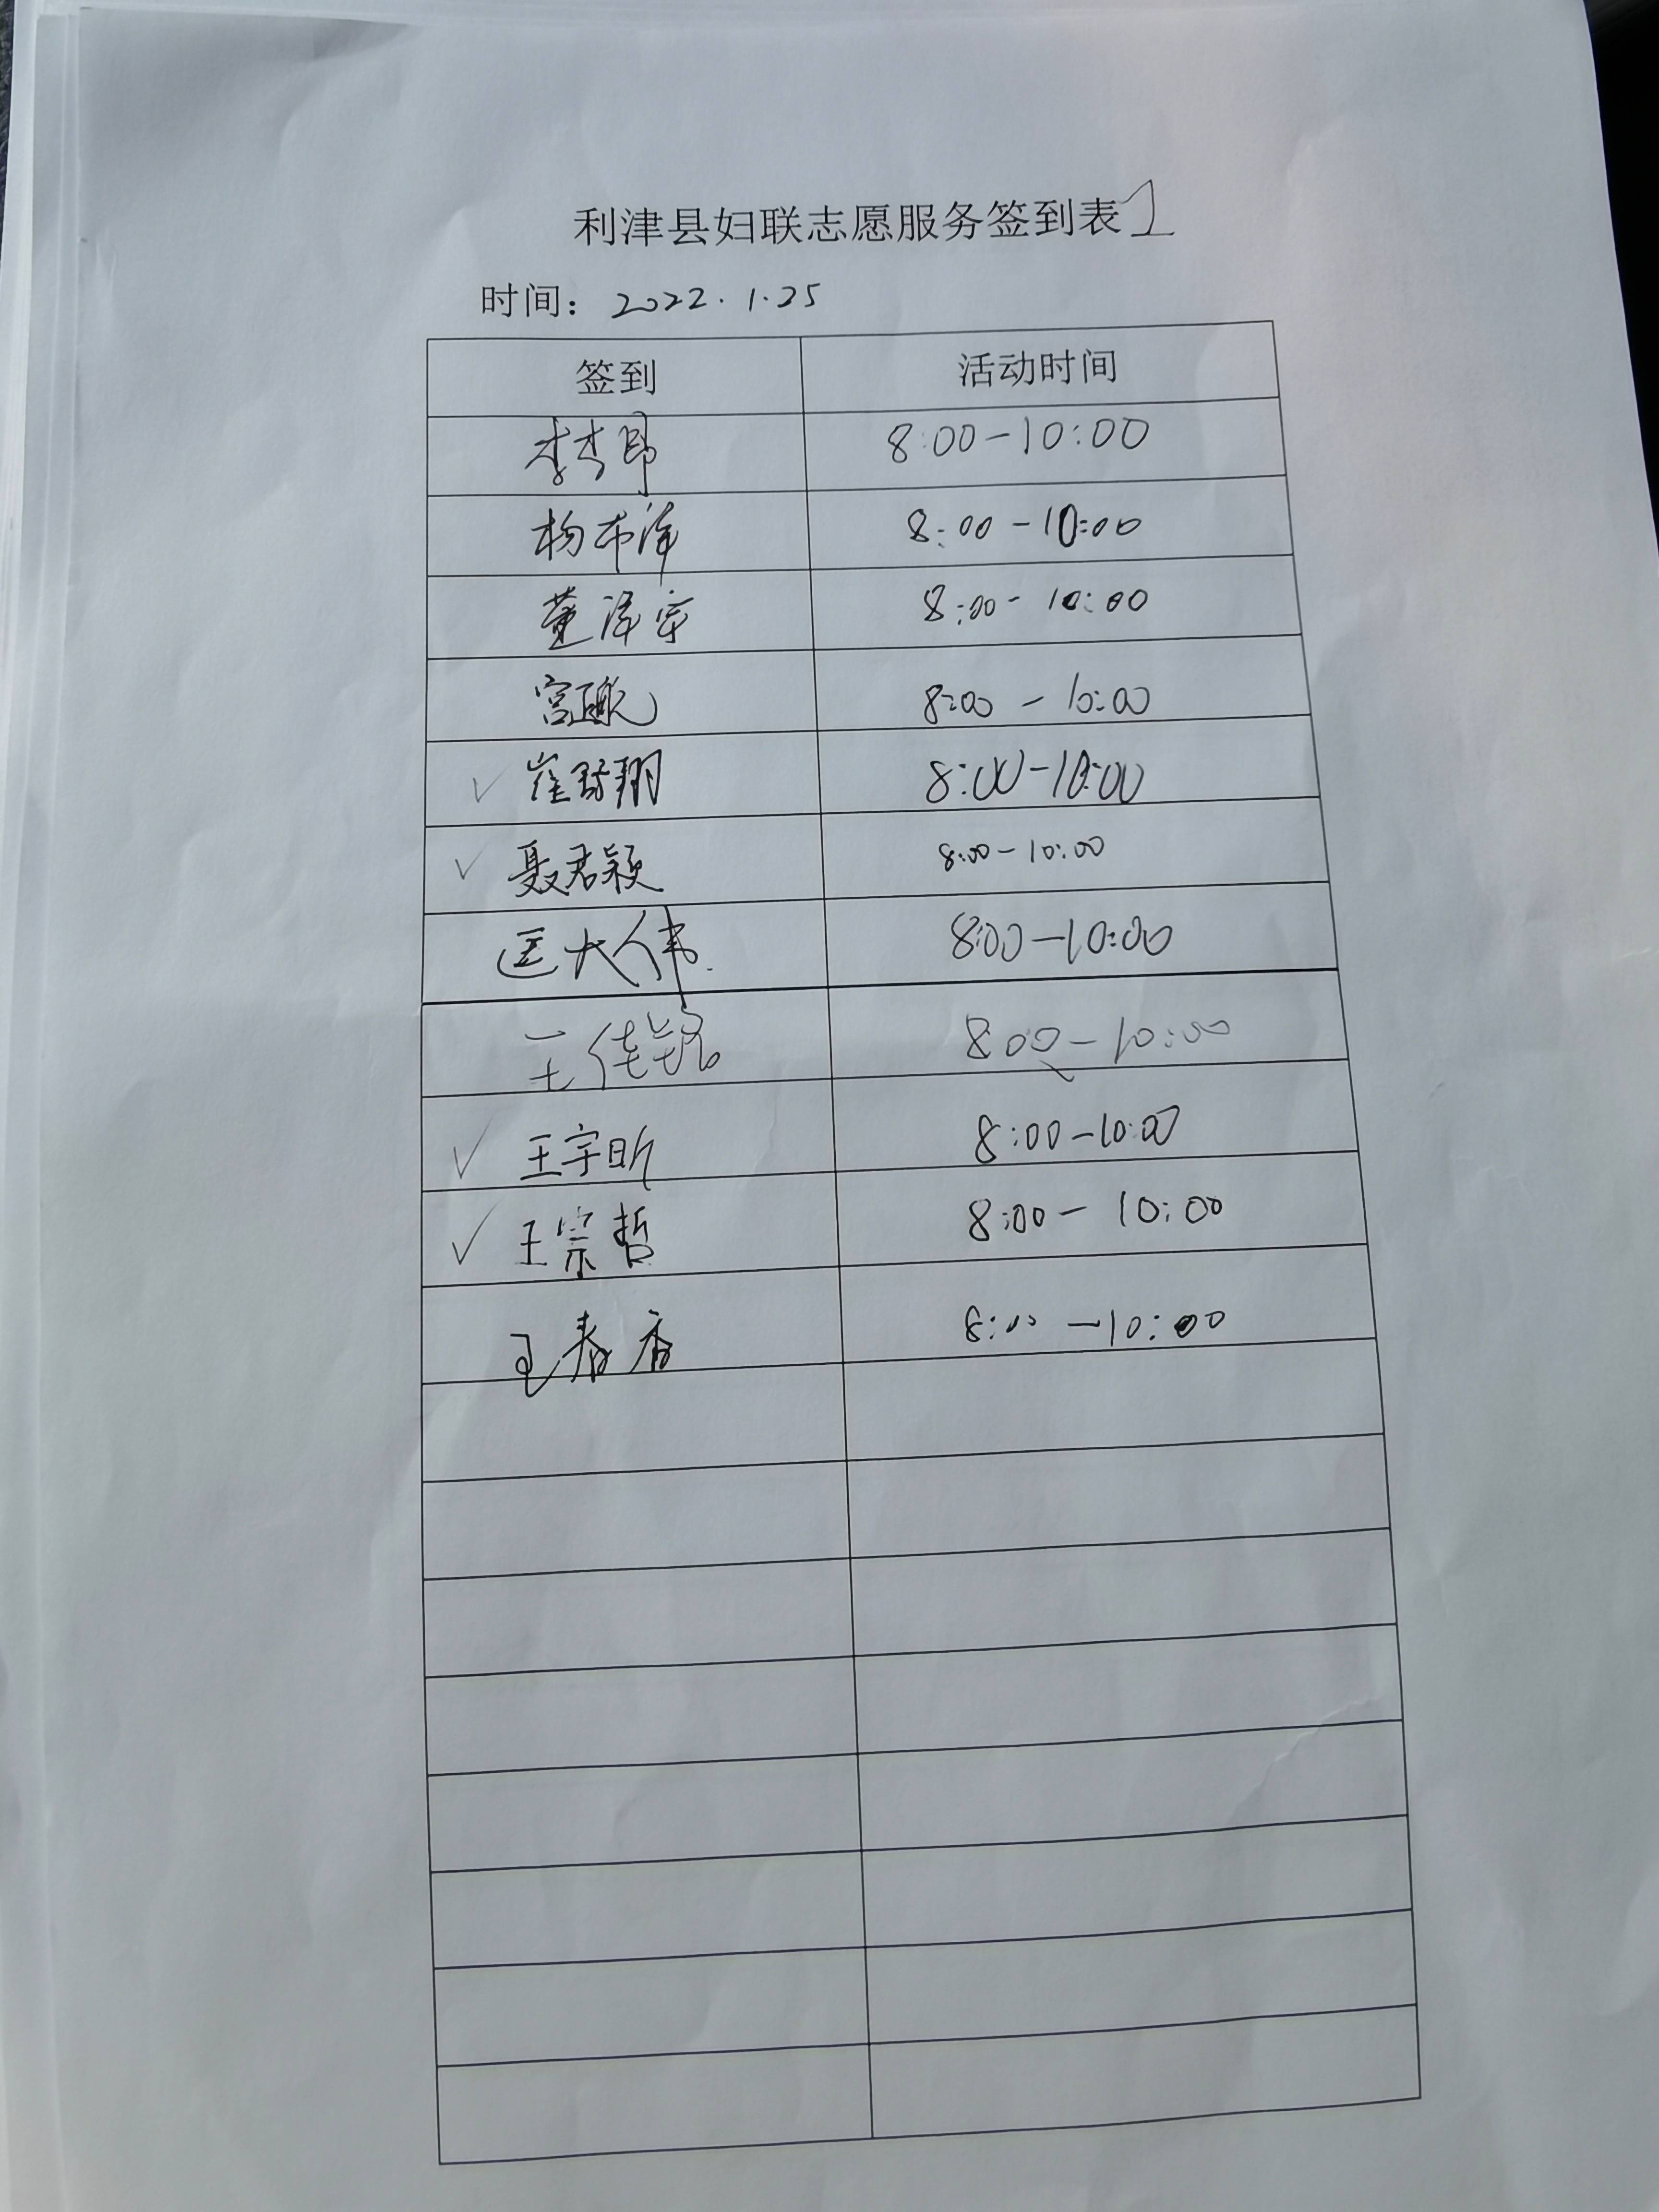 利津县妇联志愿服务签到表1
时间：2022.1.25
签到 活动时间
8:00-10:00
杨布泽 8:00-10:00
董泽宇 8:00-10:00
宫正航 8:00-10:00
✓ 崔 翔 8:00-10:00
✓ 聂君颖 8:00-10:00
匡大伟 8:00-10:00
王佳铭 8:00-10:00
✓ 王宇昕 8:00-10:00
✓ 王宗哲 8:00-10:00
王春香 8:00-10:00